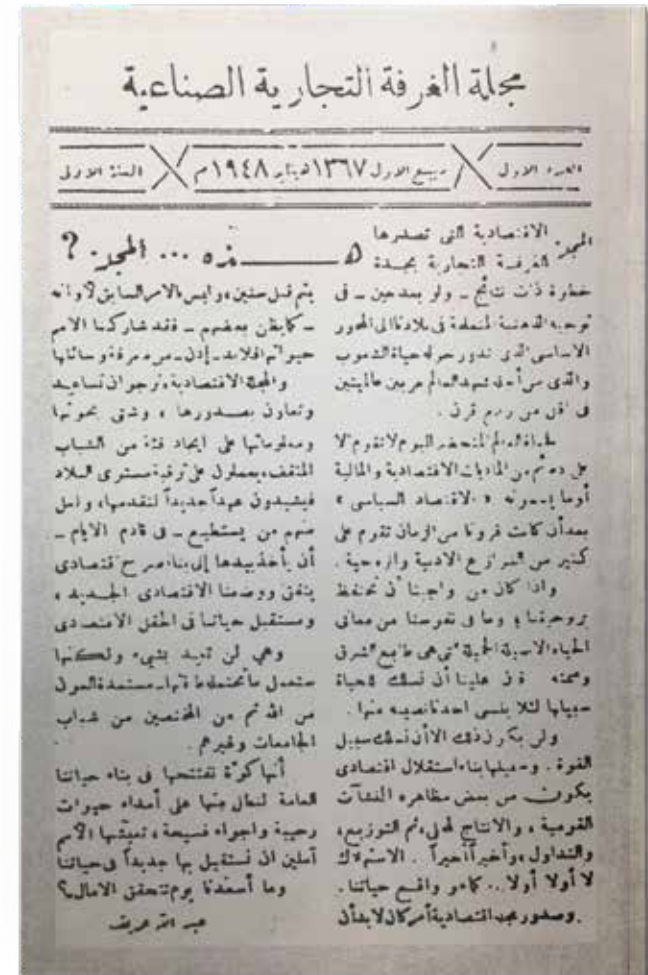 مجلة الغرفة التجارية الصناعية
العدد الاول
ربيع الاول ١٣٦٧ هـ يناير ١٩٤٨ م
السنة الاولى
هـــذه ... المجلة ؟
المجلة الاقتصادية التى تصدرها
الغرفة التجارية بجدة
خطوة ذات نتائج – ولو بعد حين – فى
توجيه الذهنية المتعلمة فى بلادنا الى المحور
الاساسى الذى تدور حوله حياة الشعوب
والذى من أجله شهد العالم حربين عالميتين
فى اقل من ربع قرن .
العالم المتحضر اليوم لا تقوم الا
على دعائم من الماديات الاقتصادية والمالية
أو ما يسمونه « الاقتصاد السياسى »
بعد أن كانت قرونا من الزمان تقوم على
كثير من النوازع الادبية والروحية .
واذا كان من واجبنا أن نحتفظ
بروحيتنا ؛ وما فى نفوسنا من معانى
الحياة الاصيلة الجميلة التى هى طابع الشرق
علينا أن نسلك للحياة
سبيلها لئلا ينسى احدنا نصيبه منها .
ولن يكون ذلك الا أن نسلك سبيل
القوة . وسبيلها بناء استقلال اقتصادى
يكون من بعض مظاهره المنشآت
القومية ، والانتاج المحلى ، ثم التوزيع ،
والتداول ، وأخيراً أخيراً . الاستهلاك
لا أولا أولا .. كما هو واقع حياتنا .
وصدور مجلة اقتصادية أمر كان لا بد أن
يتم قبل سنين ، وليس بالامر السابق لأوانه
– كما يظن بعضهم – فقد شاركنا الامم
حيواتها فلا بد – إذن – من معرفة وسائلها
والمجلة الاقتصادية ، نرجو ان تساعد
وتعاون بصدورها ، وشتى بحوثها
ومعلوماتها على ايجاد فئة من الشباب
المثقف ، يعملون على ترقية مستوى البلاد
فيشيدون عهداً جديداً لتقدمها ، ولعل
منهم من يستطيع – فى قادم الايام –
أن يأخذ بيدها إلى بناء صرح اقتصادى
يتفق ووضعنا الاقتصادى الجديد ،
ومستقبل حياتنا فى الحقل الاقتصادى
وهي لن تعد بشىء ولكنها
ستعمل ما تحتمله طاقتها . مستمدة العون
من الله ثم من المختصين من شباب
الجامعات وغيرهم .
أنها كوة نفتتحها فى بناء حياتنا
العامة لنطل منها على أمداء حيوات
رحيبة واجواء فسيحة ، تعيشها الأمم
آملين ان نستقبل بها جديداً فى حياتنا
وما أسعدنا يوم تتحقق الامال ؟
عبد الله عريف